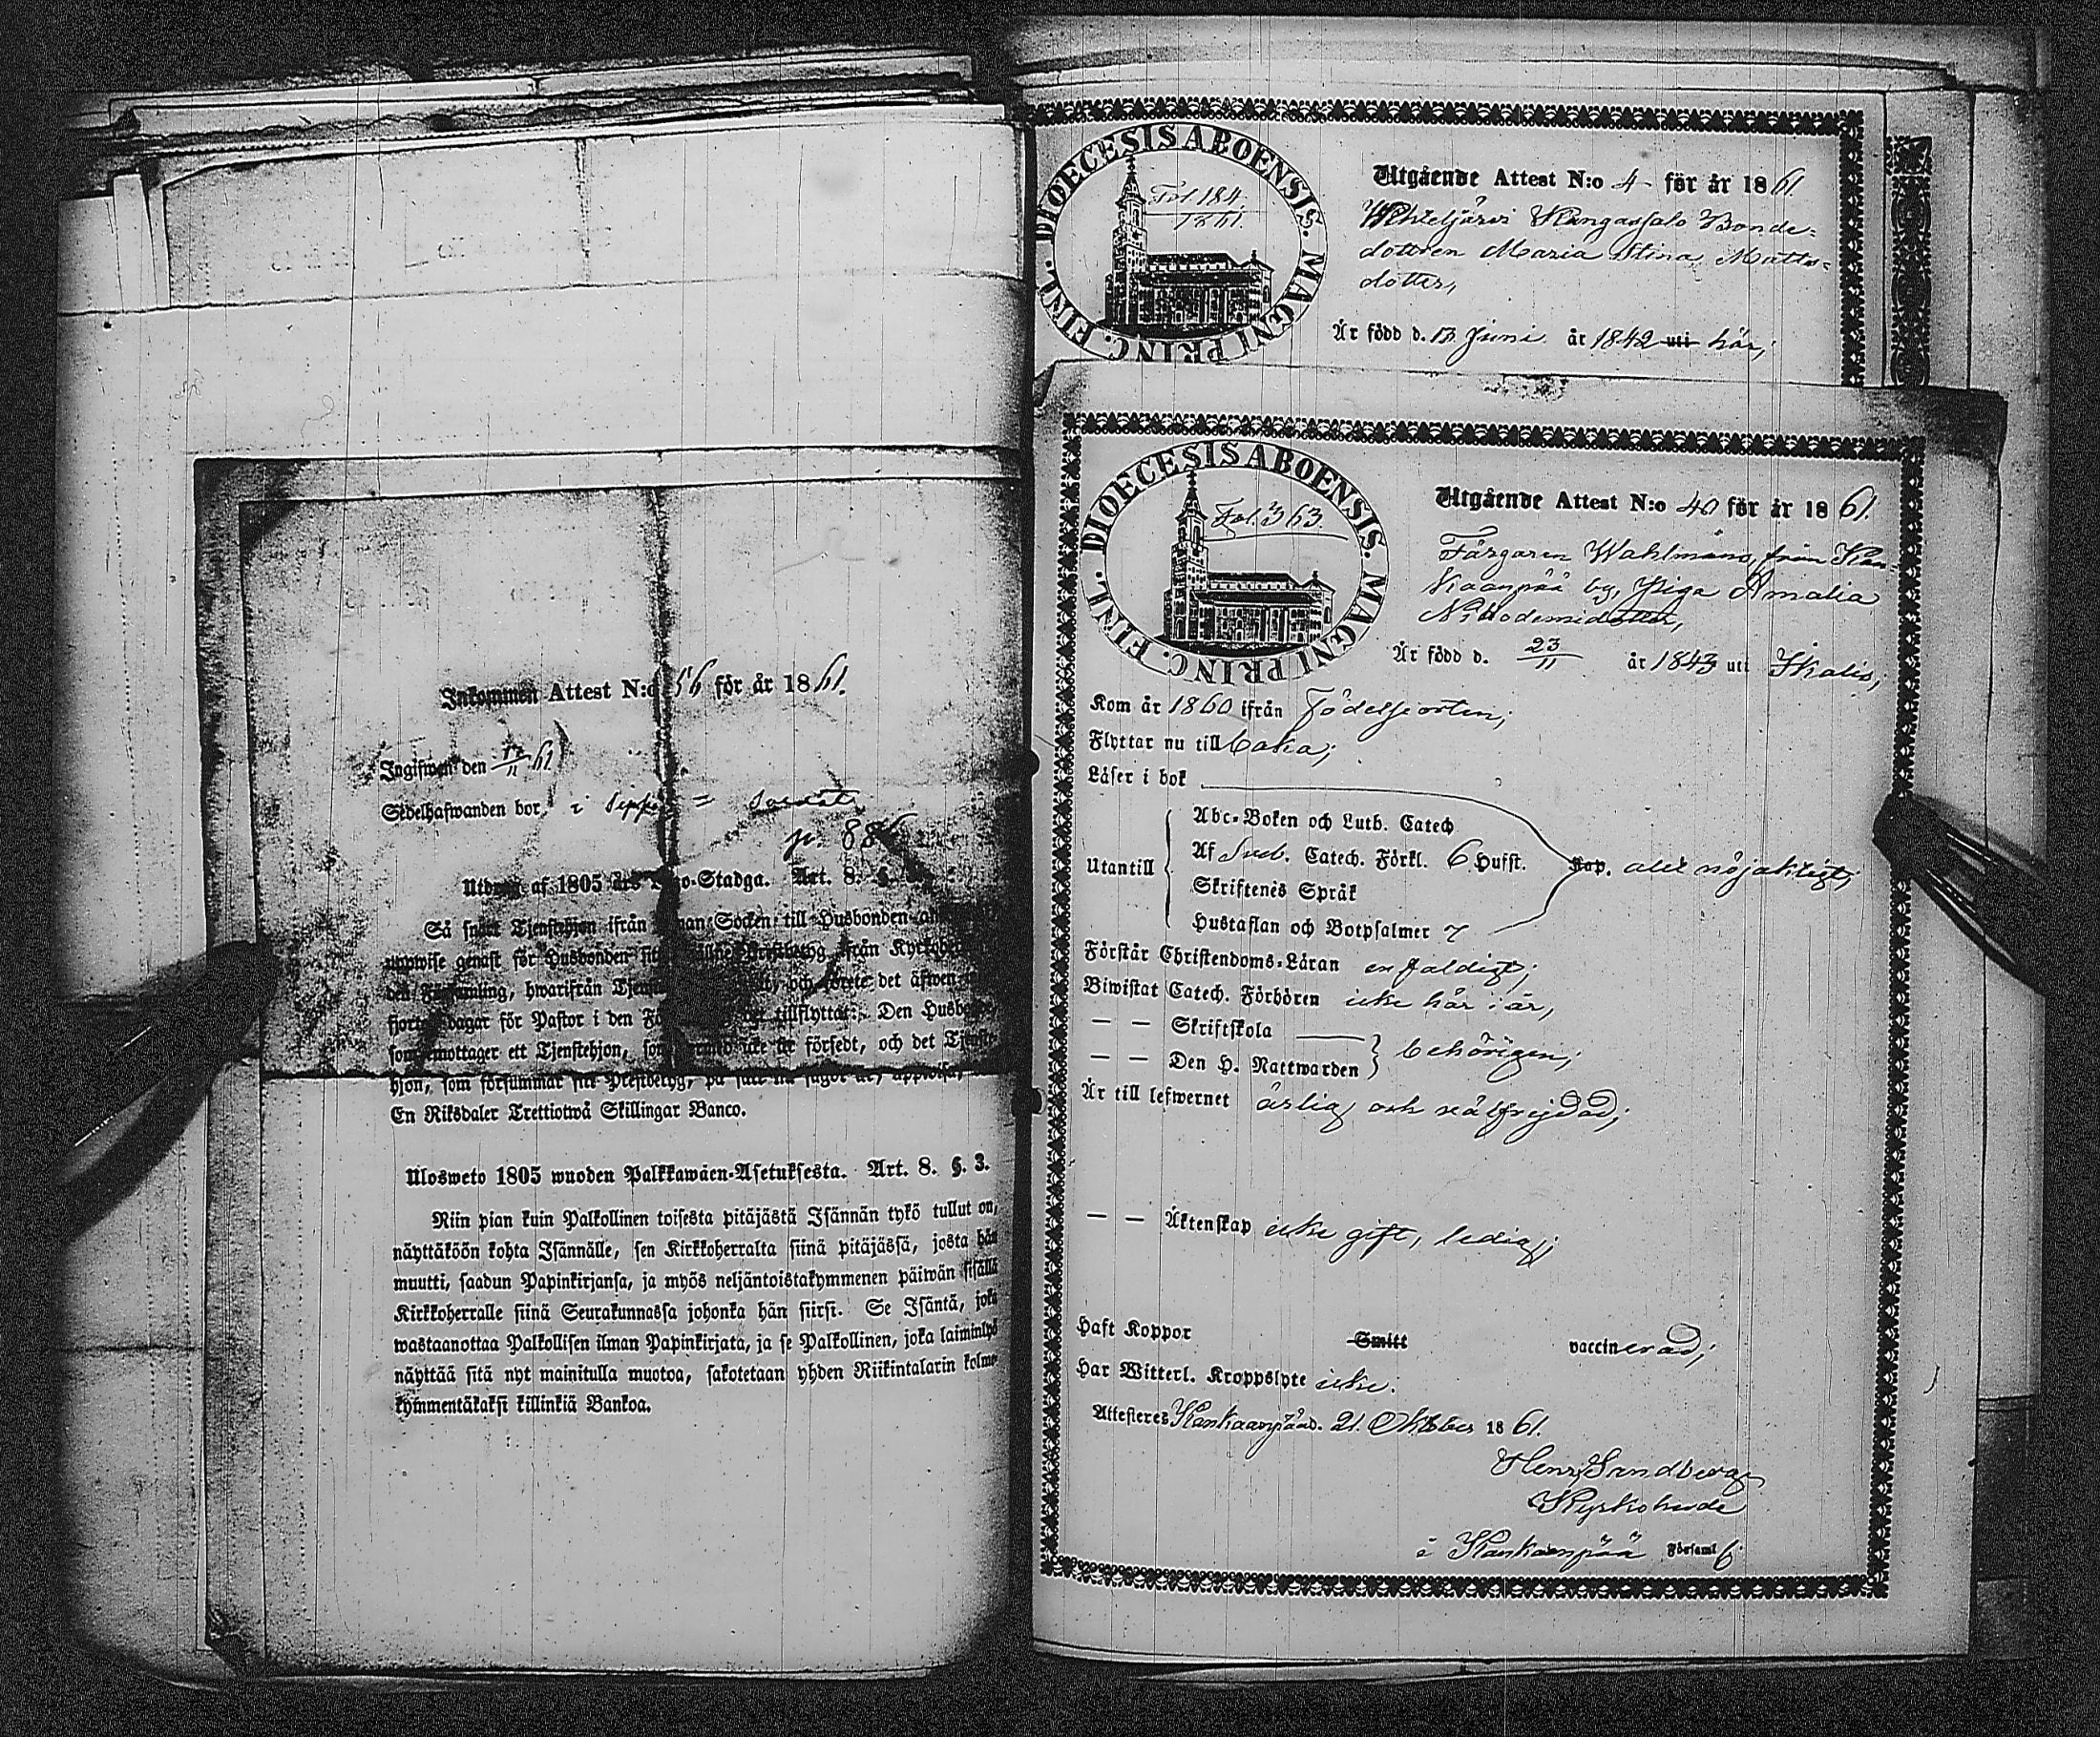 Inkommen Attest N:o 56 för år 1861.
Ingifwen den 17/11 61
Sedelhafwanden bor, i
p. 886
Utdrag af 1805 års Lego-Stadga. Art. 8. §.
Så snart Tjenstehjon ifrån annan Socken till Husbonden
uppwise genast för Husbonden sitt ifrån
den Församling, hwarifrån och förete det äfwen
fjorton dagar för Pastor i den tillflyttat. Den Husbonde
som emottager ett Tjenstehjon, som icke är försedt, och det Tjenste-
hjon, som försummar sitt Prestbetyg, på sätt nu sagdt är, uppwisa,
En Riksdaler Trettiotwå Skillingar Banco.
Ulosweto 1805 wuoden Palkkawäen-Asetuksesta. Art. 8. §. 3.
Niin pian kuin Palkollinen toisesta pitäjästä Isännän tykö tullut on,
näyttäköön kohta Isännälle, sen Kirkkoherralta siinä pitäjässä, josta hän
muutti, saadun Papinkirjansa, ja myös neljäntoistakymmenen päiwän sisällä
Kirkkoherralle siinä Seurakunnassa johonka hän siirsi. Se Isäntä, joka
wastaanottaa Palkollisen ilman Papinkirjata, ja se Palkollinen, joka laiminlyö
näyttää sitä nyt mainitulla muotoa, sakotetaan yhden Riikintalarin kolme
kymmentäkaksi killinkiä Bankoa.
DIOECESIS ABOENSIS. MAGNI PRINC. FINL.
Fol. 184.
1861.
Utgående Attest N:o 4 för år 1861.
Wihteljärvi Kangassalo Bonde-
dottren Maria Stina Matts-
dotter,
Är född d. 13 Juni år 1842 uti här,
DIOECESIS ABOENSIS. MAGNI PRINC. FINL.
Fol. 363.
Utgående Attest N:o 40 för år 1861.
Färgaren Wahlmans, från Kan-
kaanpää by, Piga Amalia
Nikodemidotter,
Är född d. 23/11 år 1843 uti Ikalis,
Kom år 1860 ifrån Födelseorten;
Flyttar nu till baka;
Läser i bok
Abc-Boken och Luth. Catech
Utantill Af Sveb. Catech. Förkl. 6 Hufst. Kap. allt nöjaktigt;
Skriftenes Språk
Hustaflan och Botpsalmer 7
Förstår Christendoms-Läran enfaldigt;
Biwistat Catech. Förhören icke här i år,
— — Skriftskola
— — Den H. Nattwarden behörigen;
Är till lefwernet ärlig och välfrejdad;
— — Äktenskap icke gift, ledig;
Haft Koppor Smitt vaccinerad;
Har Witterl. Kroppslyte icke.
Attesteres Kankaanpää d. 21. Oktober 1861.
Henr. Sandberg
Kyrkoherde
i Kankaanpää Församl.